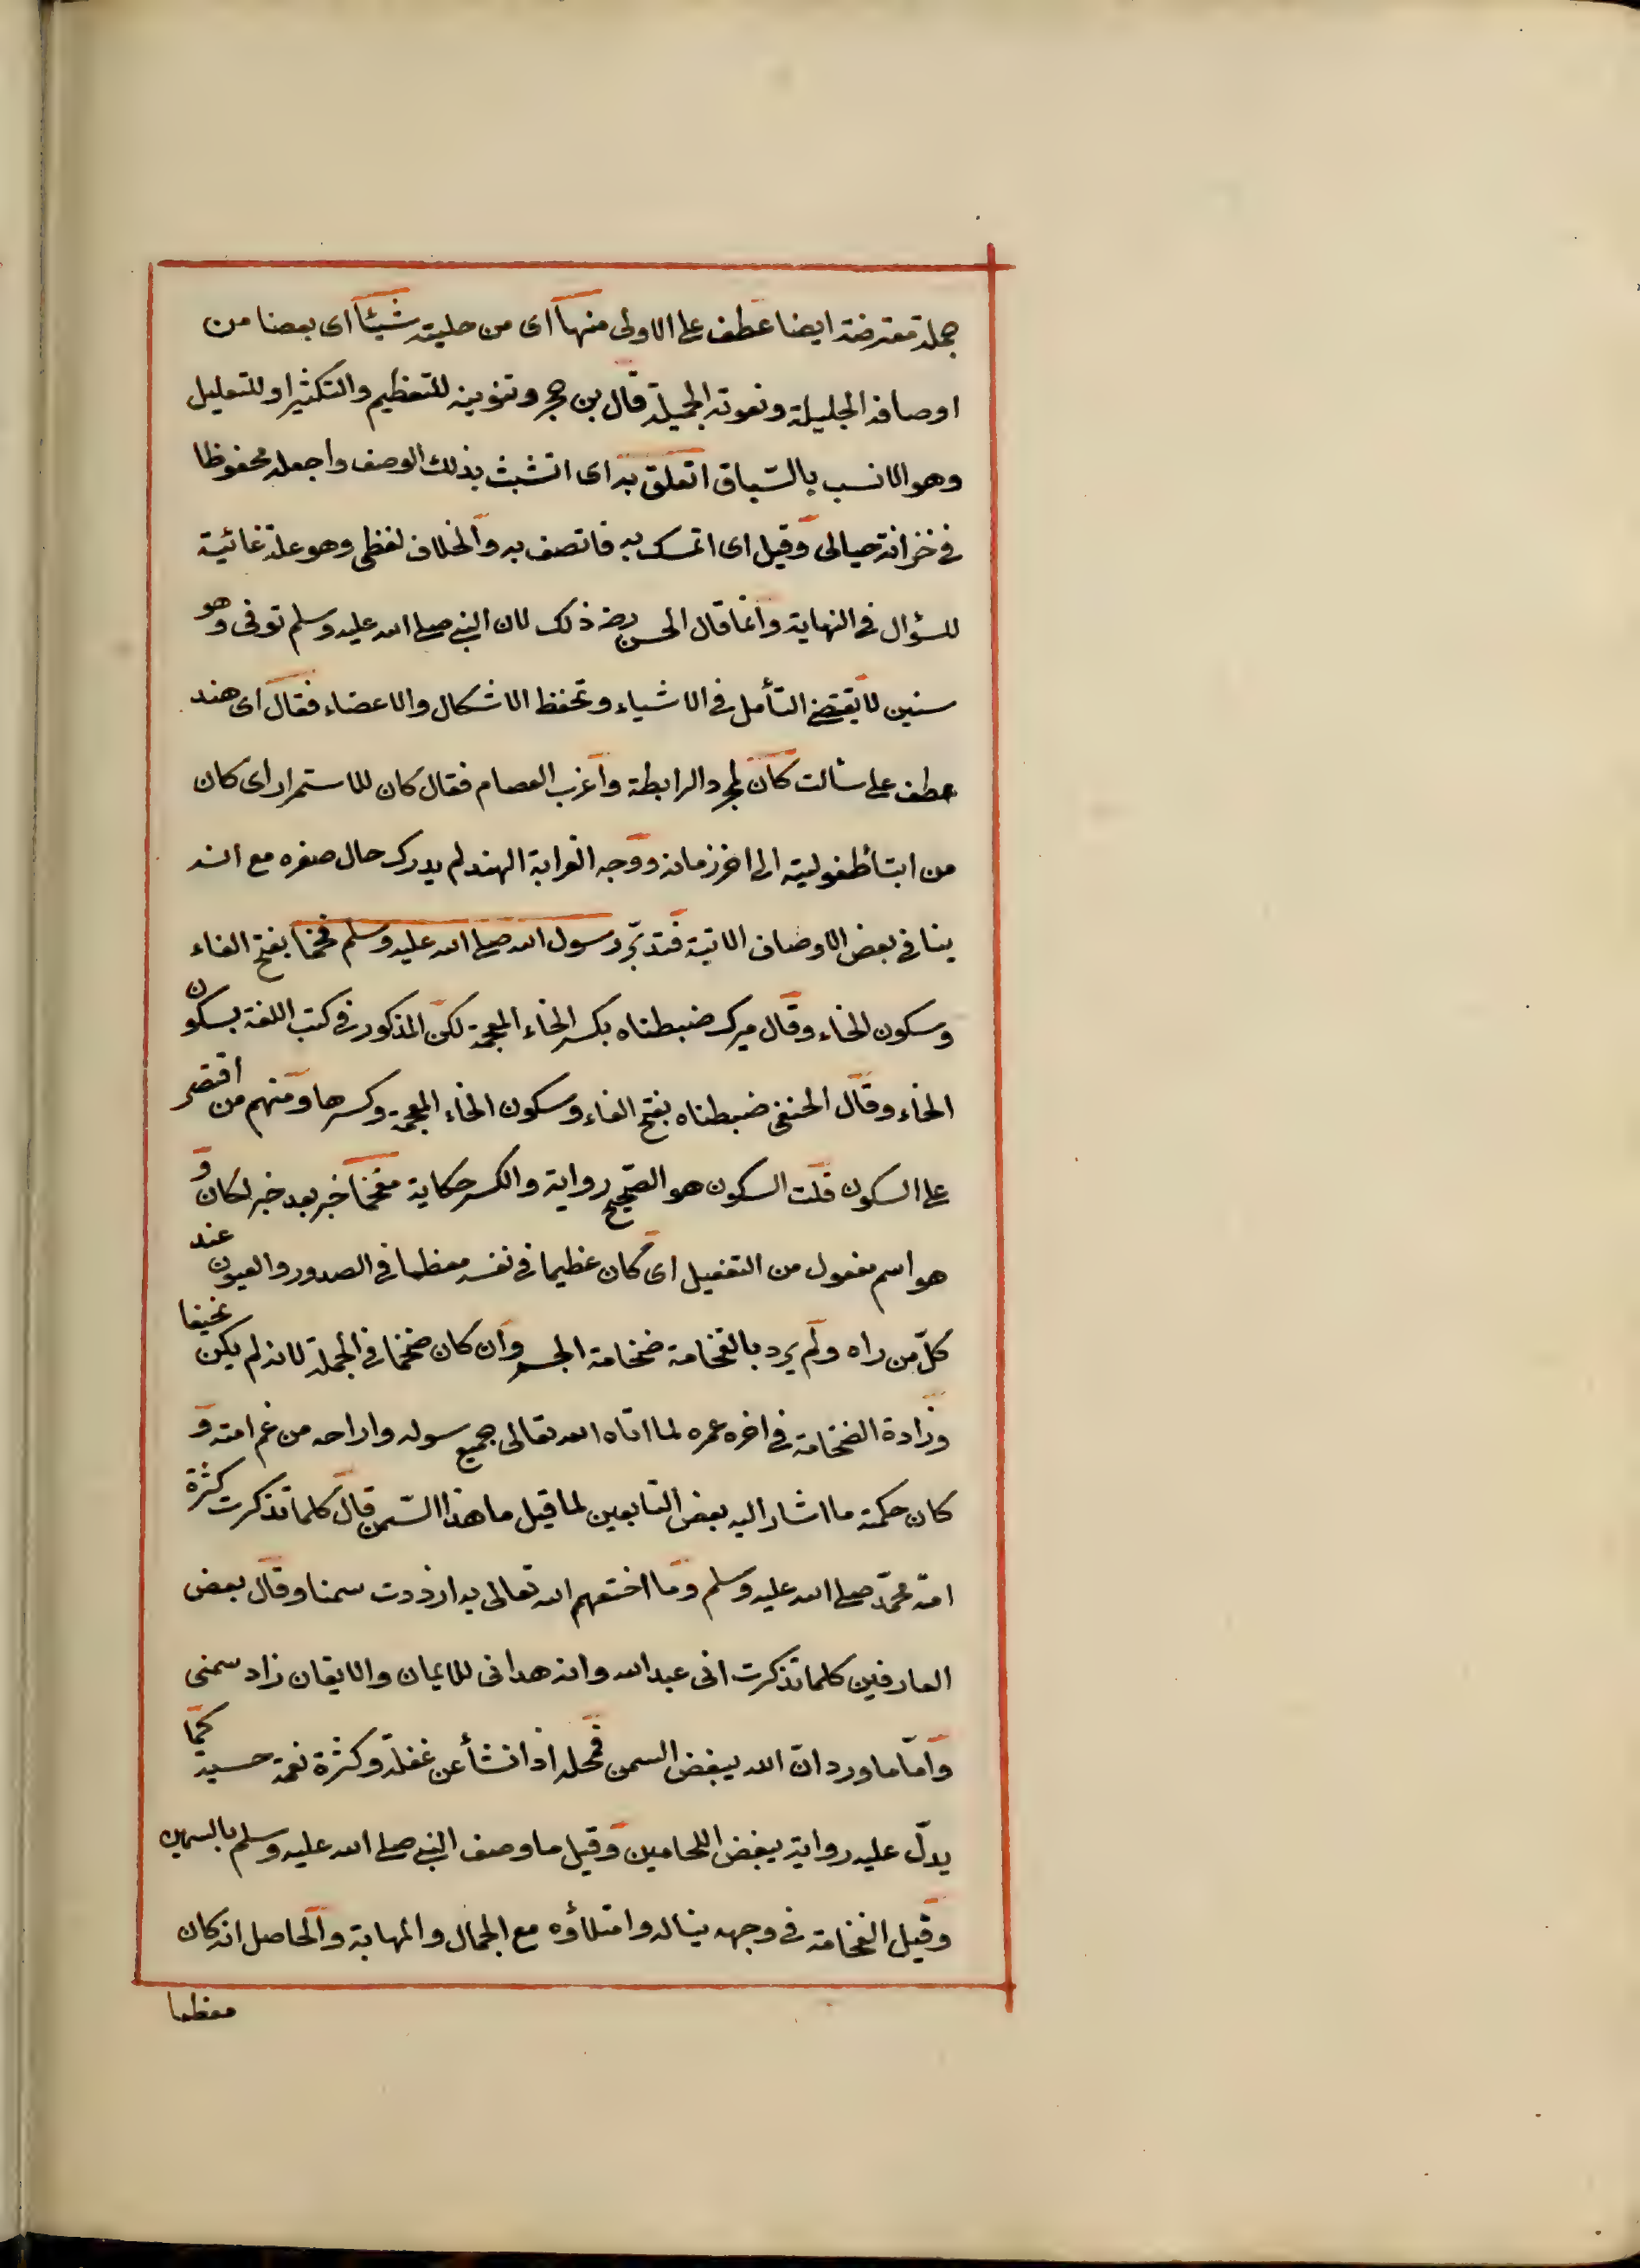 جملة معترضة ايضا عطف على الاولى منها اى من حليته شيئا اى بعضا من
اوصافه الجليلة ونعوته الجميلة قال بن حجر وتنوينه للتعظيم والتكثير او للتعليل
وهو الانسب بالسّياق اتعلق به اى اتشبث بذلك الوصف واجعله محفوظا
فى خزانة خيالى وقيل اى اتمسك به فاتصف به والخلاف لفظى وهو علة غائية
للسؤال فى النهاية وانما قال الحسن رضه ذلك لان النبى صلى الله عليه وسلم توفى وهو
سنين لا يقتضى التأمل فى الاشياء وتحفظ الاشكال والاعضاء فقال اى هند
عطف على سالت كان لمجرد الرابطة واغرب العصام فقال كان للاستمرار اى كان
من ابتأ طفوليته الى اخر زمانه ووجه الغرابة الهند لم يدرك حال صغره مع انه
ينافى بعض الاوصاف الاتية فتدبّر رسول الله صلى الله عليه وسلم فخما بفتح الفاء
وسكون الخاء وقال ميرك ضبطناه بكسر الخاء المعجمة لكن المذكور فى كتب اللغة بسكون
الخاء وقال الحنفى ضبطناه بفتح الفاء وسكون الخاء المعجمة وكسرها ومنهم من اقتصر
على السكون قلت السكون هو الصّحيح رواية والكسر حكاية مفخما خبر بعد خبر لكان و
هو اسم مفعول من التفعيل اى كان عظيما فى نفسه معظما فى الصدور والعيون عند
كلّ من راه ولم يرد بالفخامة ضخامة الجسم وان كان ضخما فى الجملة لانه لم يكن نحيفا
وزادة الضخامة فى اخره عمره لما اتاه الله تعالى جميع سوله واراحه من غم امته و
كان حكمته ما اشار اليه بعض التابعين لما قيل ما هذا السّمن قال كلما تذكرت كثرة
امة محمّد صلى الله عليه وسلم وما اختصهم الله تعالى به ازددت سمنا وقال بعض
العارفين كلما تذكرت انى عبد الله وانه هدانى للايمان والايقان زاد سمنى
وامّا ما ورد انّ الله يبغض السمن فمحله اذا نشأ عن غفلة وكثرة نعمة حسية كما
يدلّ عليه رواية يبغض اللحامين وقيل ما وصف النبى صلى الله عليه وسلم بالسمن
وقيل الفخامة فى وجهه ينباله وامتلاؤه مع الجمال والمهابة والحاصل انه كان
معظما